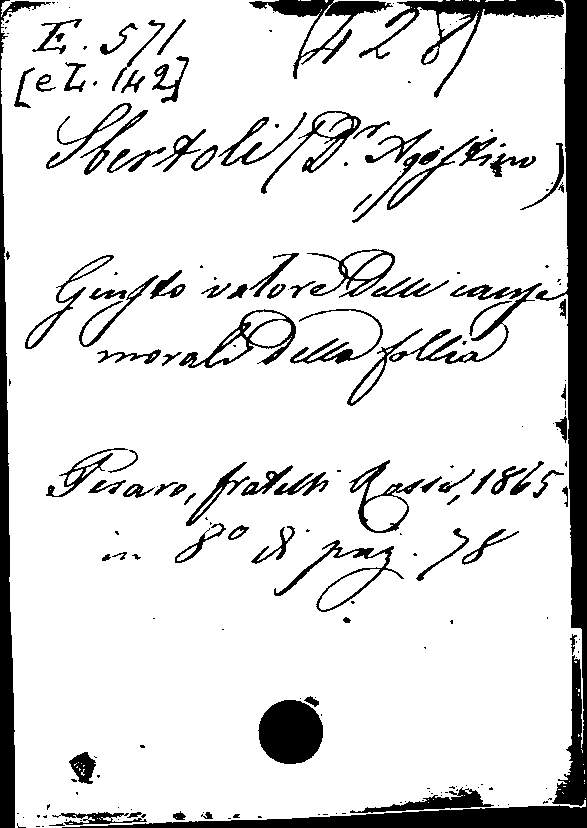 E. 571 (428)
[e L. 142]
Sbertoli (Dr. Agostino)
Giusto valore delle cause
morali della follia
Pesaro, fratelli Rossi, 1865
in 8º di pag. 78